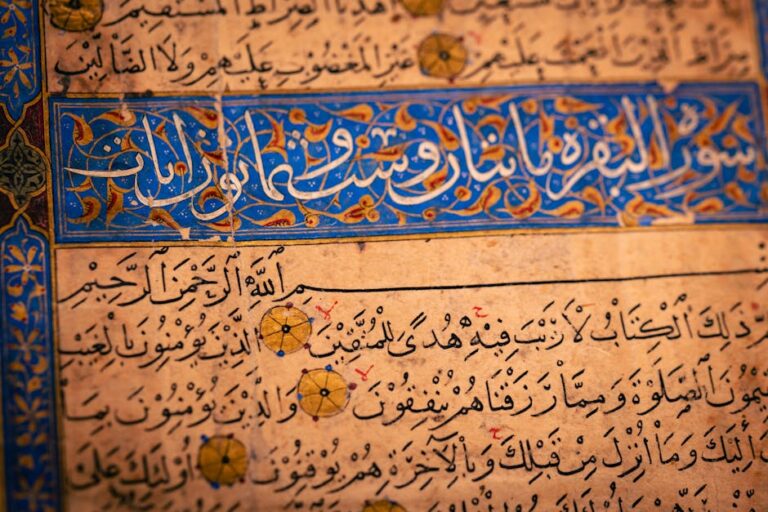 اهدنا الصراط المستقيم
صراط الذين انعمت عليهم غير المغضوب عليهم ولا الضالين
سورة البقرة مائتان وست وثمانون ايات
بِسْمِ اللَّهِ الرَّحْمَنِ الرَّحِيمِ
ذَلِكَ الْكِتَابُ لَا رَيْبَ فِيهِ هُدًى لِلْمُتَّقِينَ الَّذِينَ يُؤْمِنُونَ بِالْغَيْبِ
الصَّلَوةَ وَمِمَّا رَزَقْنَاهُمْ يُنْفِقُونَ وَالَّذِينَ يُؤْمِنُونَ بِمَا
إِلَيْكَ وَمَا أُنْزِلَ مِنْ قَبْلِكَ وَبِالْآخِرَةِ هُمْ يُوقِنُونَ أُولَئِكَ عَلَى